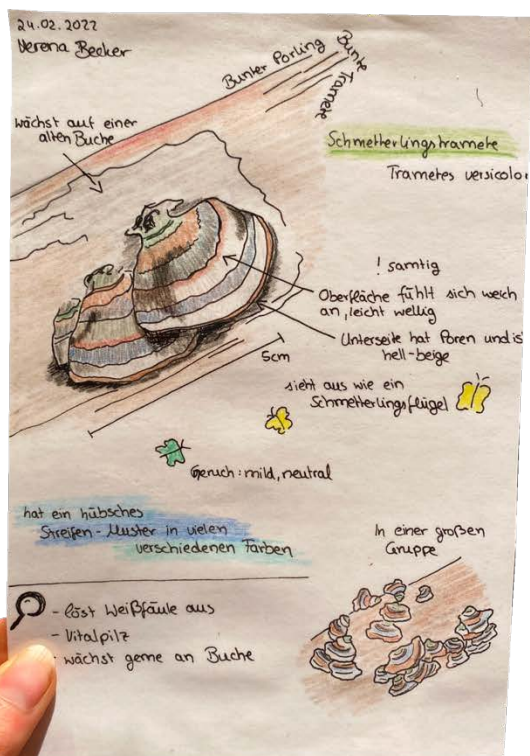 24.02.2022
Verena Becker
Bunter Porling
Bunte
Tramete
wächst auf einer
alten Buche
Schmetterlingstramete
Trametes versicolor
! samtig
Oberfläche fühlt sich weich
an, leicht wellig
Unterseite hat Poren und is
hell-beige
5cm
sieht aus wie ein
Schmetterlingsflügel
Geruch: mild, neutral
hat ein hübsches
Streifen-Muster in vielen
verschiedenen Farben
In einer großen
Gruppe
- löst Weißfäule aus
- Vitalpilz
- wächst gerne an Buche